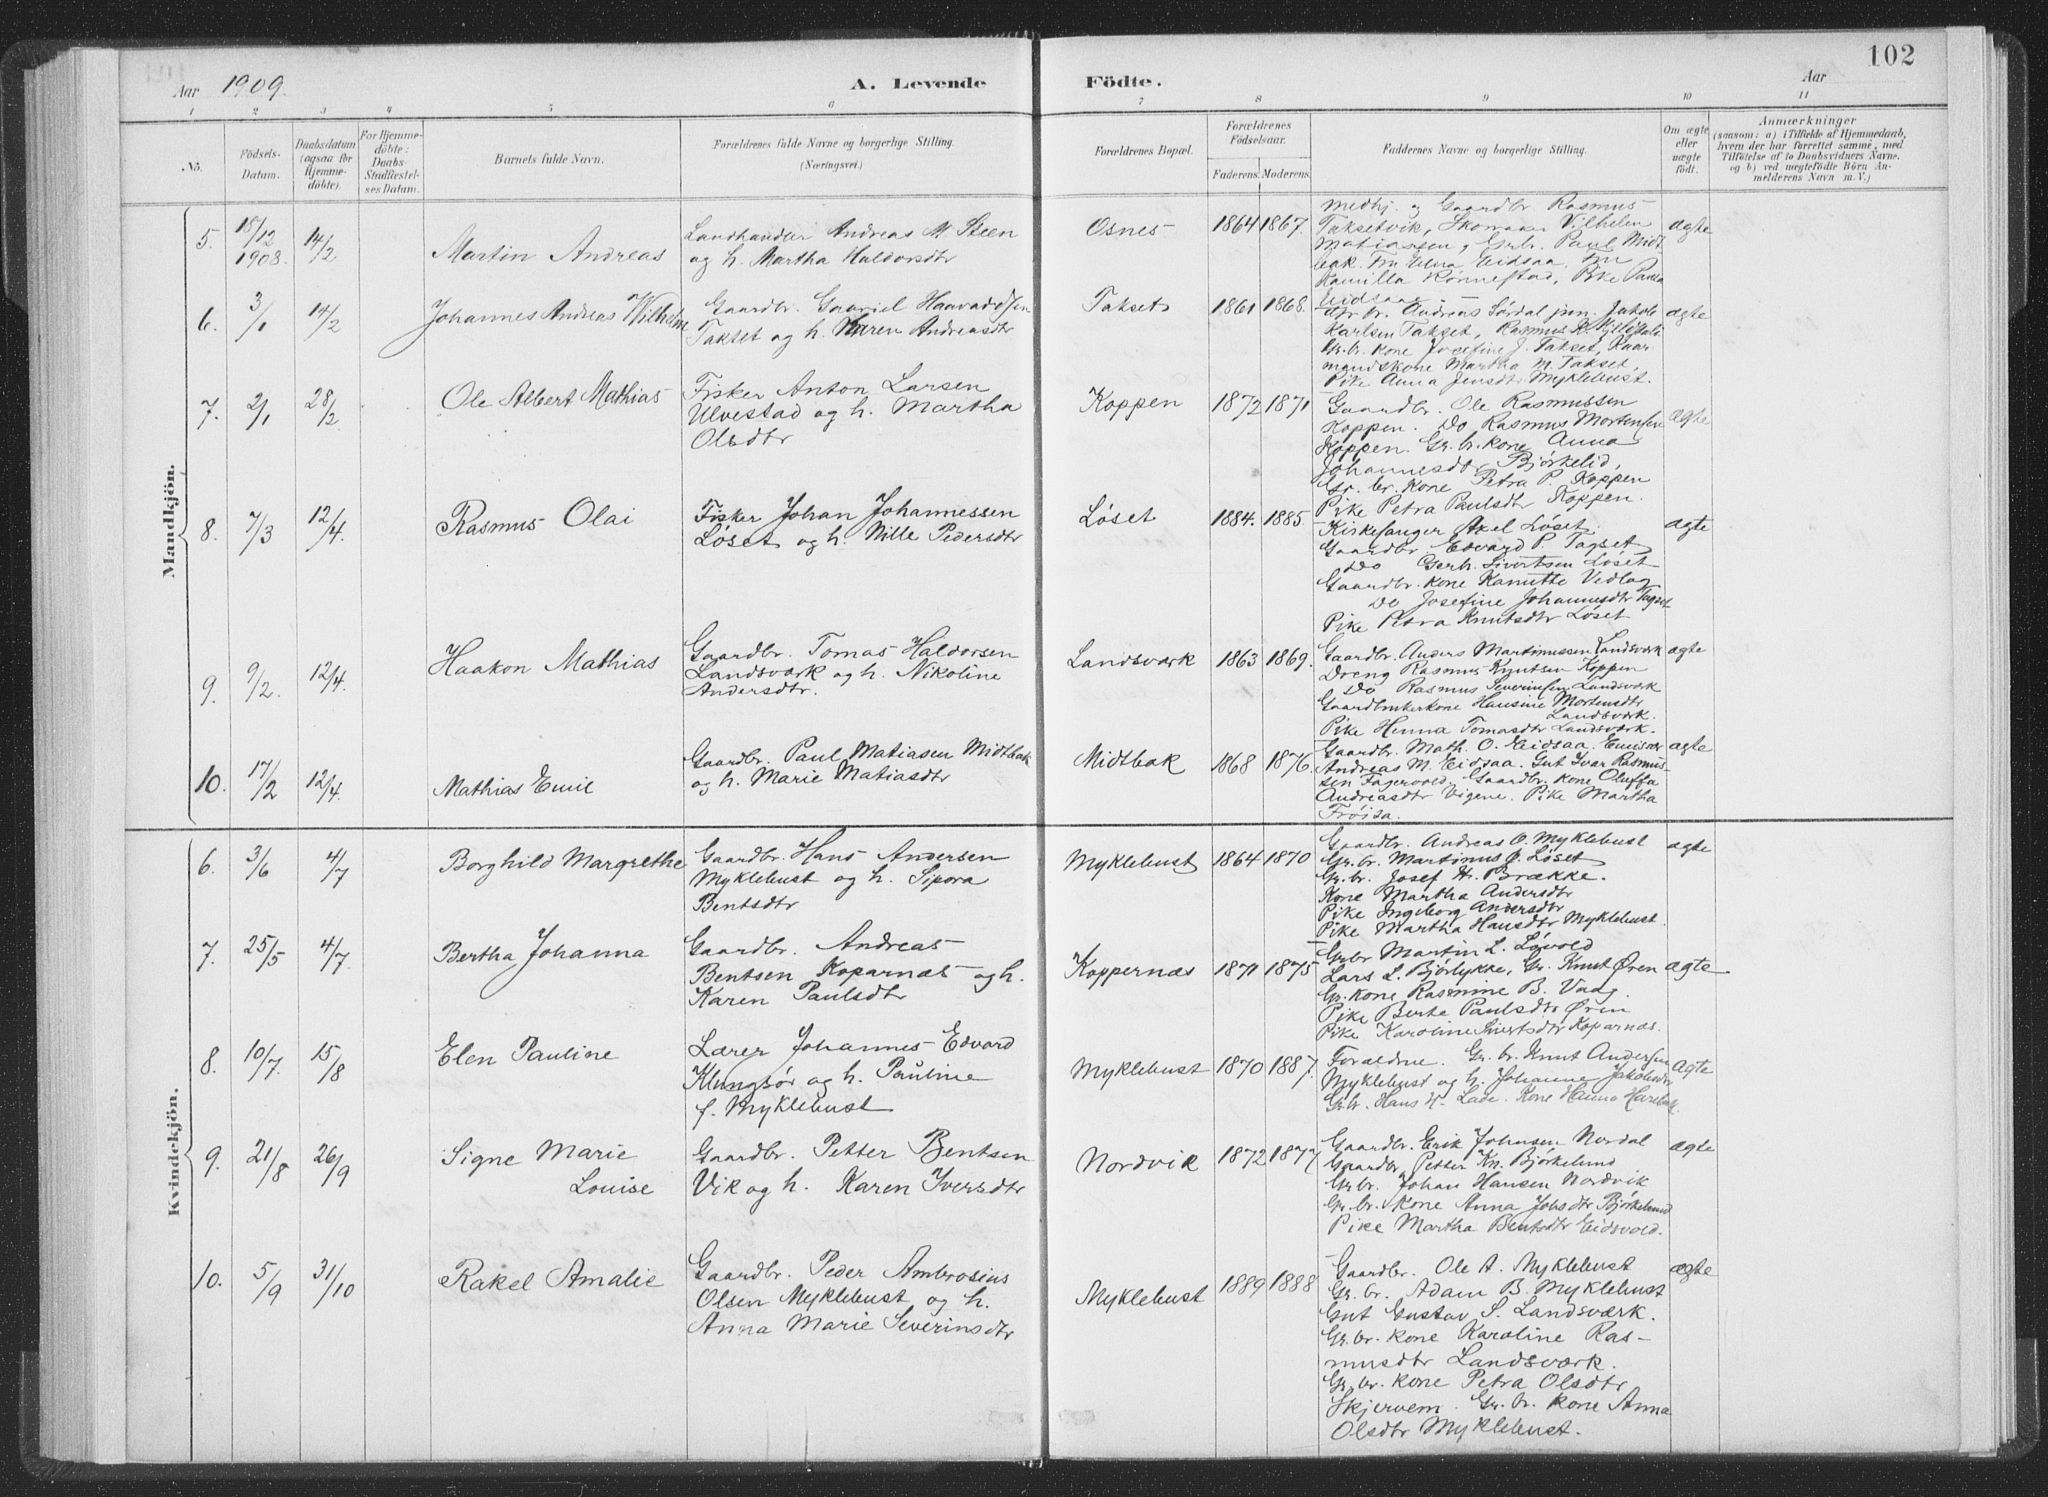 102
Aar 1909.
A. Levende Födte.
Aar
1 2 3 4 5 6 7 8 9 10 11
No.
Födsels-Datum.
Daabsdatum (ogsaa for Hjemmedöbte).
For Hjemmedöbte: Daabs-Stadfæstelses Datum.
Barnets fulde Navn.
Forældrenes fulde Navne og borgerlige Stilling.
(Næringsvei.)
Forældrenes Bopæl.
Forældrenes Födselsaar.
Faderens. Moderens.
Faddernes Navne og borgerlige Stilling.
Om ægte eller uægte födt.
Anmærkninger
(saasom: a) i Tilfælde af Hjemmedaab, hvem der har forrettet samme, med Tilföielse af to Daabsvidners Navne. og b) ved uægtefödte Börn Anmelderens Navn m. V.)
Mandkjön.
5. 18/12 1908. 14/2 Martin Andreas
Landhandler Andreas M. Steen
og h. Martha Haldorsdtr
Osnes 1864 1867
Medhj. og Gaardbr Rasmus
Taksetvik, Skomaker Vilhelm
Matiassen, Grbr. Paul Midt
bak. Fru Elna Eidsaa. Fru
Kamilla Rønnestad, Pike Paula
Eidsaa
ægte
6. 3/1 14/2 Johannes Andreas Wilhelm
Gaardbr. Gabriel Haavardsen
Takset og h. Karen Andreasdtr
Takset 1861 1868.
Gr. br. Andreas Sørdal jun. Jakob
Karlsen Takset, Rasmus R.
Gr. br. kone Josefine J. Takset, Kaar
mandskone Martha M. Takset,
Pike Anna Jensdtr Myklebust.
ægte
7. 2/1 28/2 Ole Albert Mathias
Fisker Anton Larsen
Ulvestad og h. Martha
Olsdtr
Koppen 1872 1871
Gaardbr. Ole Rasmussen
Koppen. Do Rasmus Mortensen
Koppen. Gr. br. kone Anna
Johannesdtr Bjørkelid,
Gr. br. kone Petra P. Koppen
Pike Petra Paulsdtr Koppen.
ægte
8. 7/3 12/4. Rasmus Olai
Fisker Johan Johannessen
Løset og h. Nille Pedersdtr
Løset 1884. 1885.
Kirkesanger Axel Løset.
Gaardbr. Edvard P. Tagset
Do Gerh. Sivertsen Løset
Gaardbr. kone Kanutte Vedlog
Do Josefine Johannesdtr Tagset
Pike Petra Knutsdtr Løset
ægte
9. 9/2. 12/4. Haakon Mathias
Gaardbr. Tomas Haldorsen
Landsværk og h. Nikoline
Andersdtr.
Landsværk 1863 1869.
Gaardbr. Anders Martinussen Landsværk
Dreng Rasmus Knutsen Koppen
Do Rasmus Severinsen Landsværk
Gaardbrukerkone Hansine Mortensdtr
Landsværk.
Pike Hanna Tomasdtr Landsværk.
ægte
10. 17/2 12/4. Mathias Emil
Gaardbr. Paul Matiasen Midtbak
og h. Marie Matiasdtr
Midtbak 1868 1876
Gaardbr. Math. O. Eidsaa. Emisær
Andreas M. Eidsaa. Gut Ivar Rasmus-
sen Fagervold, Gaardbr. kone Oluffa
Andreasdtr Vigene. Pike Martha
Frøisa.
ægte
Kvindekjön.
6. 3/6 4/7 Borghild Margrethe
Gaardbr. Hans Andersen
Myklebust og h. Sipora
Bentsdtr
Myklebust 1864 1870
Gaardbr. Andreas O. Myklebust
Gr. br. Martinus J. Løset
Gr. br. Josef H. Brække.
Kone Martha Andersdtr
Pike Ingeborg Andersdtr
Pike Martha Hansdtr Myklebust.
ægte
7. 25/5 4/7. Bertha Johanna
Gaardbr. Andreas
Bentsen Koparnæs og h.
Karen Paulsdtr
Koppernæs 1871 1875
Grbr Martin L. Løvold
Lars L. Bjørlykke, Gr. Knut Øren
Gr. kone Rasmine B. Vaag.
Pike Berte Paulsdtr Øren
Pike Karoline Sivertsdtr Koparnæs.
ægte
8. 10/7. 15/8 Elen Pauline
Lærer Johannes Edvard
Klungsør og h. Pauline
f. Myklebust
Myklebust 1870 1887.
Foraldrne. Gr. br. Knut Andersen
Myklebust og h. Johanne Jakobsdtr
Gr.br. Hans H. Lade. Kone Hanna
ægte
9. 21/8 26/9 Signe Marie
Louise
Gaardbr. Petter Bentsen
Vik og h. Karen Iversdtr
Nordvik 1872 1877
Gaardbr. Erik Johnsen Nordal
Gaardbr. Petter Kn. Bjørkelund
Gr.br. Johan Hansen Nordvik
Gr. br. kone Anna Jobsdtr Bjørkelund
Pike Martha Bentsdtr Eidsvold.
ægte
10. 5/9 31/10 Rakel Amalie
Gaardbr. Peder Ambrosius
Olsen Myklebust og h.
Anna Marie Severinsdtr
Myklebust 1889 1888
Gaardbr. Ole A. Myklebust
Gr. br. Adam B. Myklebust
Gut Gustav S. Landsværk.
Gr. br. kone Karoline Ras-
musdtr Landsværk.
Gr. br. kone Petra Olsdtr
Skjervem. Gr. br. kone Anna
Olsdtr Myklebust.
ægte